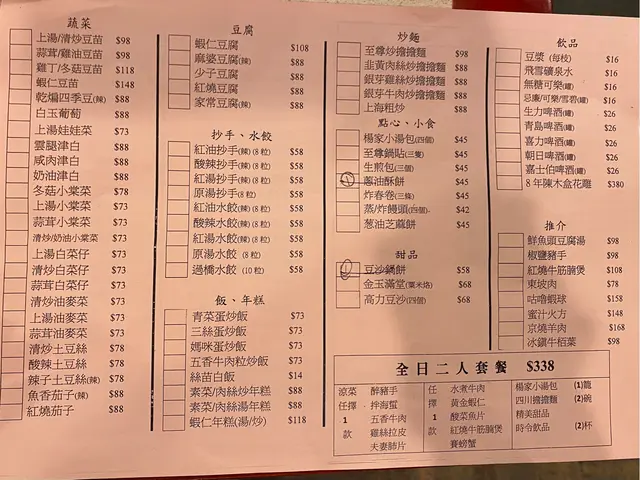 蔬菜
上湯/清炒豆苗 $98
蒜茸/雞油豆苗 $98
雞丁/冬菇豆苗 $118
蝦仁豆苗 $148
乾煸四季豆(辣) $88
白玉葡萄 $88
上湯娃娃菜 $73
雲腿津白 $88
咸肉津白 $88
奶油津白 $88
冬菇小棠菜 $78
上湯小棠菜 $73
蒜茸小棠菜 $73
清炒/奶油小棠菜 $73
上湯白菜仔 $73
清炒白菜仔 $73
蒜茸白菜仔 $73
清炒油麥菜 $73
上湯油麥菜 $73
蒜茸油麥菜 $73
清炒土豆絲 $78
酸辣土豆絲 $78
辣子土豆絲(辣) $78
魚香茄子(辣) $88
紅燒茄子 $88
豆腐
蝦仁豆腐 $108
麻婆豆腐(辣) $88
少子豆腐 $88
紅燒豆腐 $88
家常豆腐(辣) $88
抄手、水餃
紅油抄手(辣)(8粒) $58
酸辣抄手(辣)(8粒) $58
紅湯抄手(辣)(8粒) $58
原湯抄手(8粒) $58
紅油水餃(辣)(8粒) $58
酸辣水餃(辣)(8粒) $58
紅湯水餃(辣)(8粒) $58
原湯水餃 (8粒) $58
過橋水餃 (10粒) $58
飯、年糕
青菜蛋炒飯 $73
三絲蛋炒飯 $73
媽咪蛋炒飯 $73
五香牛肉粒炒飯 $73
絲苗白飯 $14
素菜/肉絲炒年糕 $88
素菜/肉絲湯年糕 $88
蝦仁年糕(湯/炒) $118
炒麵
至尊炒擔擔麵 $98
韭黃肉絲炒擔擔麵 $88
銀芽雞絲炒擔擔麵 $88
銀芽牛肉炒擔擔麵 $88
上海粗炒 $88
點心、小食
楊家小湯包(四個) $45
至尊鍋貼(三隻) $45
生煎包(三個) $45
蔥油酥餅 $45
炸春卷(三條) $45
蒸/炸饅頭(四個) $42
葱油芝麻餅 $45
甜品
豆沙鍋餅 $58
金玉滿堂(粟米烙) $68
高力豆沙(四個) $68
飲品
豆漿 (每枝) $16
飛雪礦泉水 $16
無糖可樂(罐) $16
忌廉/可樂/雪碧(罐) $16
生力啤酒(罐) $26
青島啤酒(罐) $26
喜力啤酒(罐) $26
朝日啤酒(罐) $26
嘉士伯啤酒(罐) $26
8年陳木盒花雕 $380
推介
鮮魚頭豆腐湯 $98
椒鹽豬手 $98
紅燒牛筋腩煲 $108
東坡肉 $78
咕嚕蝦球 $158
蜜汁火方 $148
京燒羊肉 $168
冰鎮牛栢菜 $98
全日二人套餐 $338
涼菜 醉豬手 任 水煮牛肉 楊家小湯包 (1)籠
任擇 拌海蜇 擇 黃金蝦仁 四川擔擔麵 (2)碗
1 五香牛肉 1 酸菜魚片 精美甜品
款 雞絲拉皮 款 紅燒牛筋腩煲 時令飲品 (2)杯
夫妻肺片 賽螃蟹